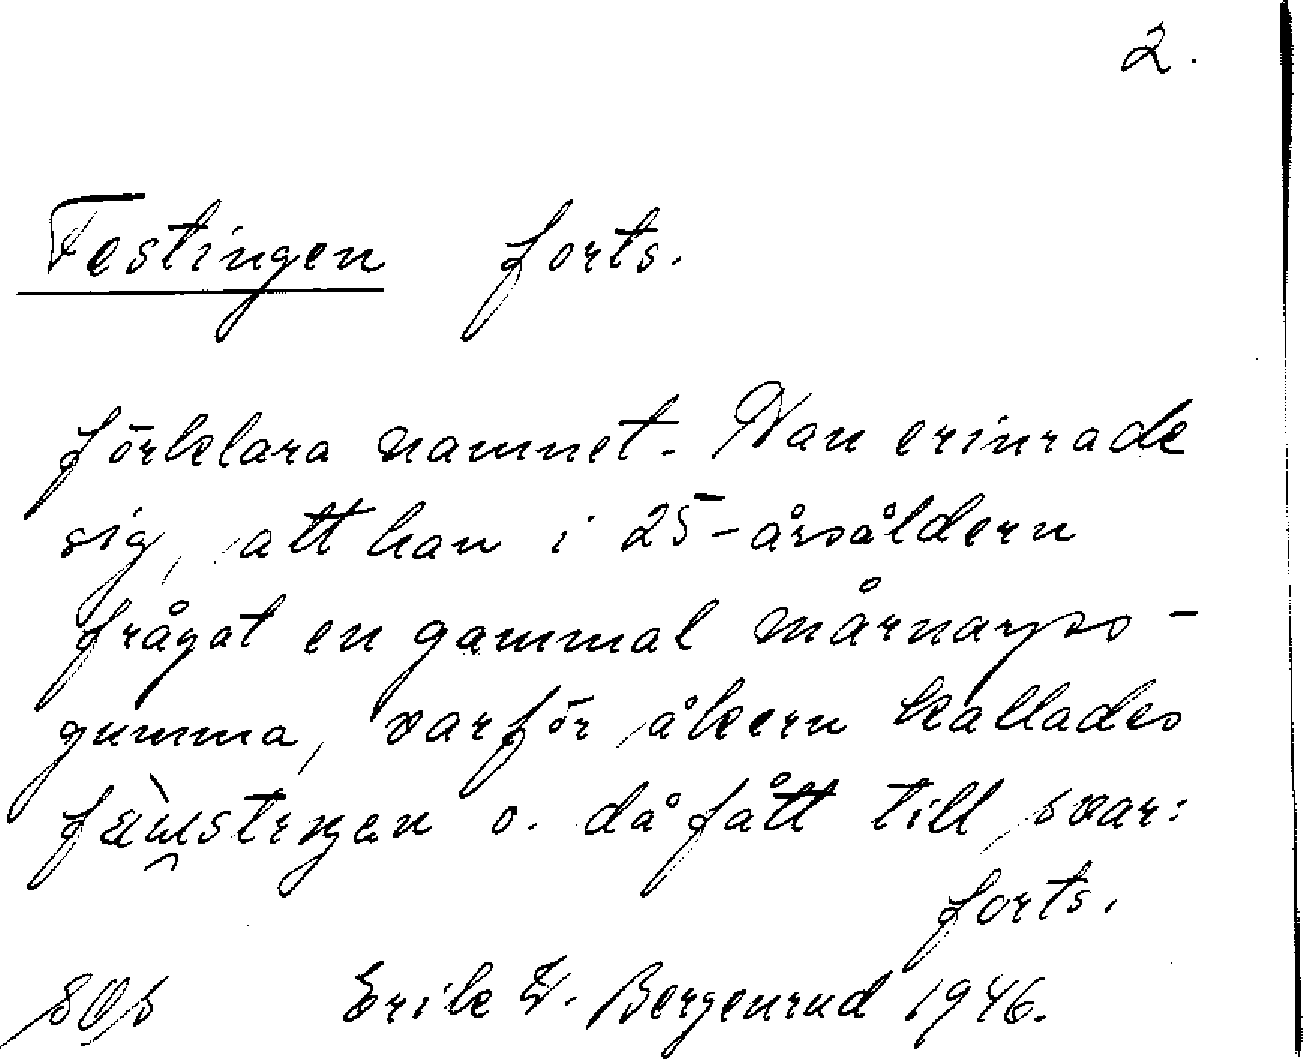 2.
Festingen forts.
förklara namnet. Han erinrade
sig, att han i 25-årsåldern
frågat en gammal
gumma, varför åkern kallades
o. då fått till svar:
forts.
Erik W. Bergenrud 1946.